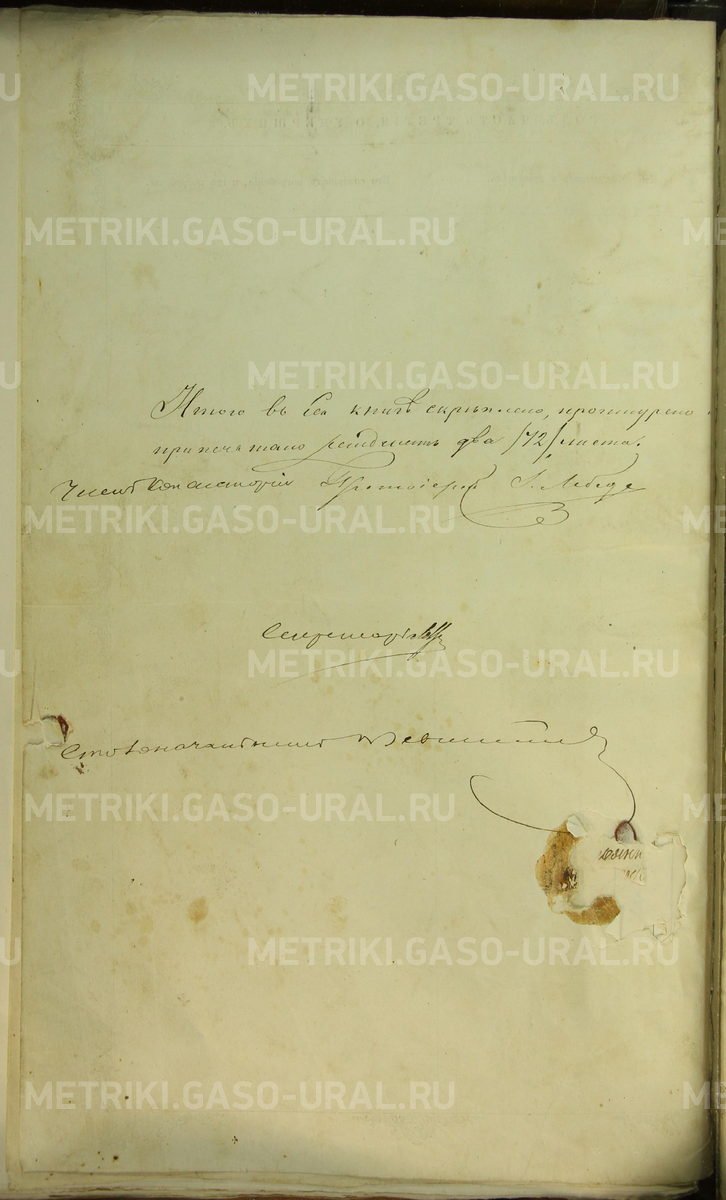 METRIKI.GASO-URAL.RU
METRIKI.GASO-URAL.RU
METRIKI.GASO-URAL.RU
Итого въ сей книгѣ скрѣплено, прошнурено
припечатано семдесятъ два /72/ листа.
Членъ Консисторіи Протоіерей І. Лебеде
METRIKI.GASO-URAL.RU
Секретарь
METRIKI.GASO-URAL.RU
Столоначальникъ
METRIKI.GASO-URAL.RU
METRIKI.GASO-URAL.RU
METRIKI.GASO-URAL.RU